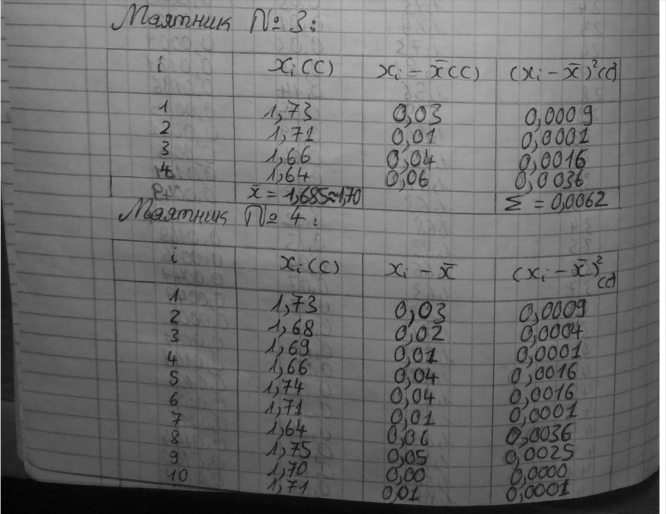 Маятник №3:
i xi (c) xi - x̄ (c) (xi - x̄)² (c²)
1 1,73 0,03 0,0009
2 1,71 0,01 0,0001
3 1,66 0,04 0,0016
4 1,64 0,06 0,0036
x̄ = 1,685≈1,70 Σ = 0,0062
Маятник №4:
i xi (c) xi - x̄ (xi - x̄)² (c²)
1 1,73 0,03 0,0009
2 1,68 0,02 0,0004
3 1,69 0,01 0,0001
4 1,66 0,04 0,0016
5 1,74 0,04 0,0016
6 1,71 0,01 0,0001
7 1,64 0,06 0,0036
8 1,75 0,05 0,0025
9 1,70 0,00 0,0000
10 1,71 0,01 0,0001